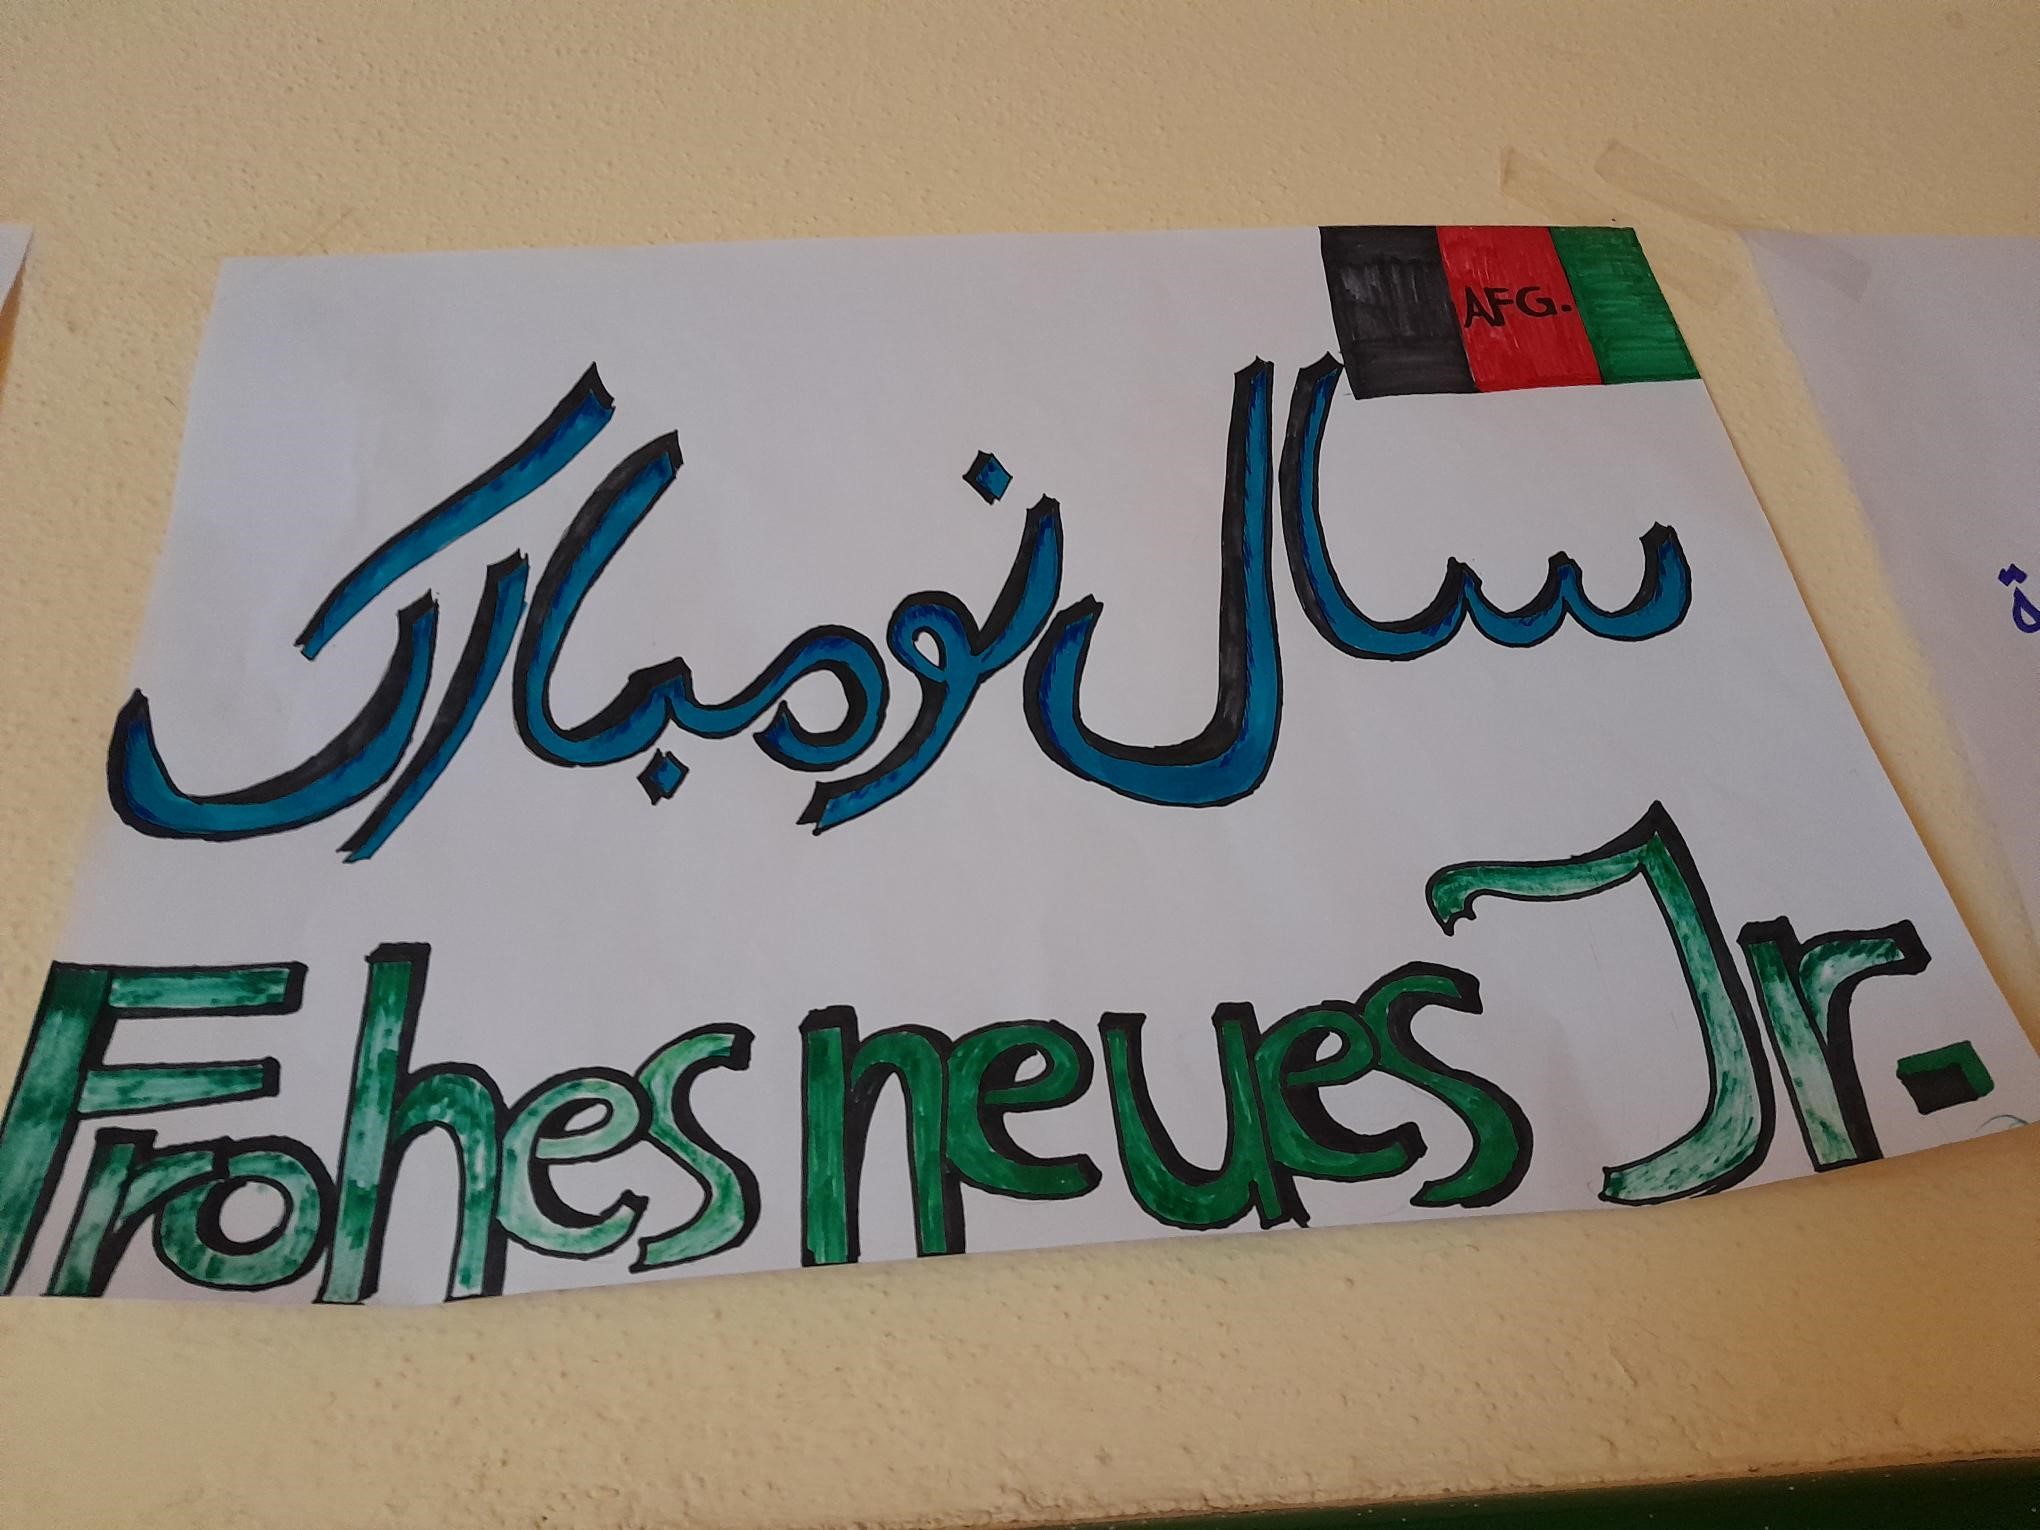 AFG.
سال نو مبارک
Frohes neues Jr.
ة